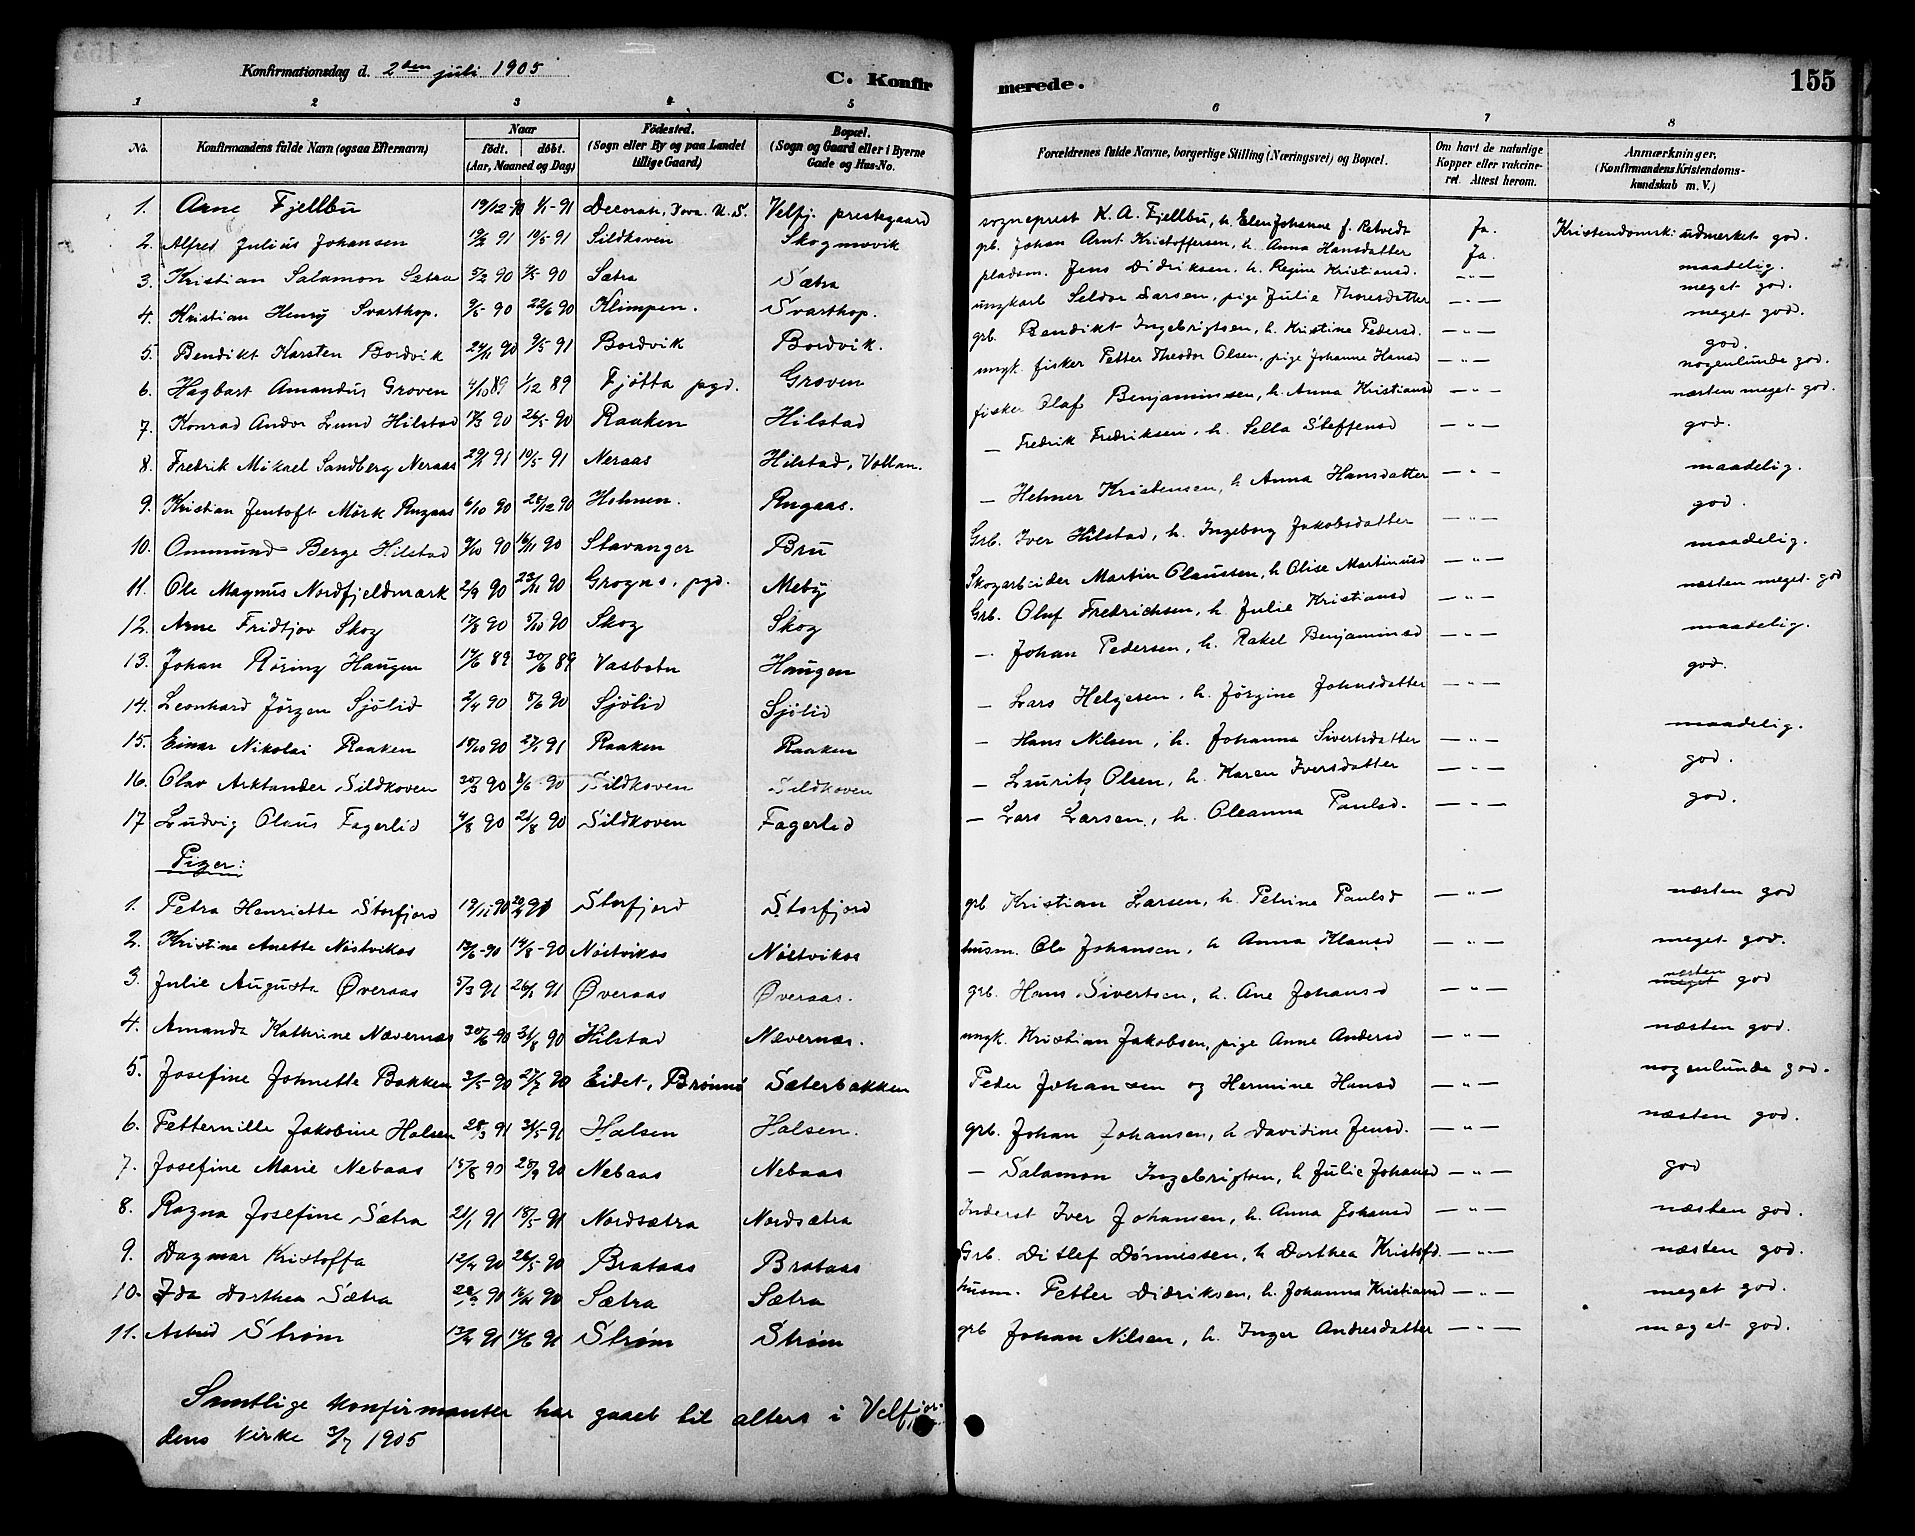 Konfirmationsdag d. 2den juli 1905
C. Konfirmerede.
155
1 2 3 4 5 6 7 8
No. Konfirmandens fulde Navn (ogsaa Efternavn) Naar født. døbt. (Aar, Maaned og Dag) Fødested. (Sogn eller By og paa Landet tillige Gaard) Bopæl. (Sogn og Gaard eller i Byerne Gade og Hus-No. Forældrenes fulde Navne, borgerlige Stilling (Næringsvei) og Bopæl. Om havt de naturlige Kopper eller vakcineret. Attest herom. Anmærkninger. (Konfirmandens Kristendomskundskab m. V.)
1. Arne Fjellbu 19/12-90 1/1-91 Decorah, Iova. U.S. Velfj. prestegaard sogneprest K. A. Fjellbu, h. Elen Johanne f. Retvedt Ja. Kristendomsk: udmerket god.
2. Alfred Julius Johansen 91 10/5-91 Sildkoven Skogmovik grb. Johan Arnt Kristoffersen, h. Anna Hansdatter Ja. maadelig.
3. Kristian Salamon Sætra 5/2 90 90 Sætra Sætra pladsm. Jens Didriksen, h. Regine Kristiansd. —"— meget god.
4. Kristian Henry Svarthop. 9/5 90 22/6 90 Klimpen. Svarthop. ungkarl Seldor Larsen, pige Julie Thoresdatter —"— meget god.
5. Bendikt Karsten Bordvik 24/11 90 3/5 91 Bordvik Bordvik. grb. Bendikt Ingebrigtsen, h. Kristine Pedersd. —"— god.
6. Hagbart Amandus Groven 4/10 89 1/12 89 Tjøtta pgd. Groven ungk. fisker Petter Theodor Olsen, pige Johanne Hansd —"— nogenlunde god.
7. Konrad Andor Lund Hilstad 17/3 90 26/5 90 Raaken Hilstad fisker Olaf Benjaminssen, h. Anna Kristiansd —"— næsten meget god.
8. Fredrik Mikael Sandberg Neraas 29/1 91 10/5 91 Neraas Hilstad, Vollan. — Fredrik Fredriksen, h. Sella Steffensd —"— god.
9. Kristian Jentoft Mørk Rugaas 6/10 90 28/12 90 Holmen. Rugaas. — Helmer Kristensen, h Anna Hansdatter —"— maadelig.
10. Ommund Berge Hilstad 9/10 90 16/11 90 Stavanger Bru Grb. Iver Hilstad, h. Ingeborg Jakobsdatter —"— god.
11. Ole Magnus Nordfjeldmark 2/9 90 23/11 90 Grogns. pgd. Meby Skogarbeider Martin Claussen, h Olise Martinusd —"— maadelig.
12. Arne Fridtjov Skog 17/8 90 5/10 90 Skog Skog Grb. Oluf Fredrichsen, h. Julie Kristiansd —"— næsten meget god
13. Johan Røring Haugen 14/6 89 30/6 89 Vasbotn Haugen — Johan Pedersen, h. Rakel Benjaminsd —"— maadelig.
14. Leonhard Jørgen Sjølid 2/4 90 8/6 90 Sjølid Sjølid — Lars Helgesen, h. Jørgine Johnsdatter —"— god.
15. Einar Nikolai Raaken 18/10 90 27/1 91 Raaken Raaken — Hans Nilsen, h. Johanna Sivertsdatter —"— maadelig.
16. Olav Arktander Sildkoven 30/3 90 8/6-90 Sildkoven Sildkoven — Laurits Olsen, h. Karen Iversdatter —"— god.
17 Ludvig Olaus Fagerlid 4/8 90 21/8 90 Sildkoven Fagerlid — Lars Larsen, h. Oleanna Paulsd. —"— god.
Piger:
1. Petra Henriette Storfjord 19/12 90 91 Storfjord Storfjord grb. Kristian Larsen, h. Petrine Paulsd —"— næsten god
2. Kristine Anette Nøstvikos 13/6-90 14/8-90 Nøstvikos Nøstvikos husm. Ole Johansen, h Anna Klausd —"— meget god.
3. Julie Augusta Øveraas 5/3 91 91 Øveraas Øveraas. grb. Hans Sivertsen, h. Ane Johansd —"— næsten meget god
4. Amanda Kathrine Nævernæs 30/6-90 31/8 90 Hilstad Nævernæs. ungk. Kristian Jakobsen, pige Anne Andersd —"— næsten god.
5. Josefine Johnette Bakken 3/5-90 27/7 90 Eidet, Brønnø Sæterbakken Peder Johansen og Hermine Hansd —"— nogenlunde god.
6. Petternille Jakobine Halsen 28/3 91 31/5-91 Halsen Halsen. grb. Johan Johansen, h Davidine Jensd. —"— næsten god.
7. Josefine Marie Nebaas 15/8 90 28/9 90 Nebaas Nebaas — Salamon Ingebrigtsen, h Julie Johansd —"— god
8. Ragna Josefine Sætra 21/1 91 18/5-91 Nordsætra Nordsætra Inderst Iver Johansen, h. Anna Johansd —"— næsten god.
9. Dagmar Kristoffa 12/4 90 26/5 90 Brataas Brataas Grb. Ditlef Dørmissen, h Dorthea Kristofd. —"— næsten god.
10. Ida Dorthea Sætra 28/9 90 16/11 90 Sætra Sætra husm. Petter Didriksen, h. Johanna Kristiansd —"— meget god.
11. Astrid Strøm 13/4 91 14/6 91 Strøm Strøm grb Johan Nilsen, h. Inger Andresdatter —"— meget god.
Samtlige konfirmanter har gaaet til alters i Velfjor-
dens kirke 3/7 1905